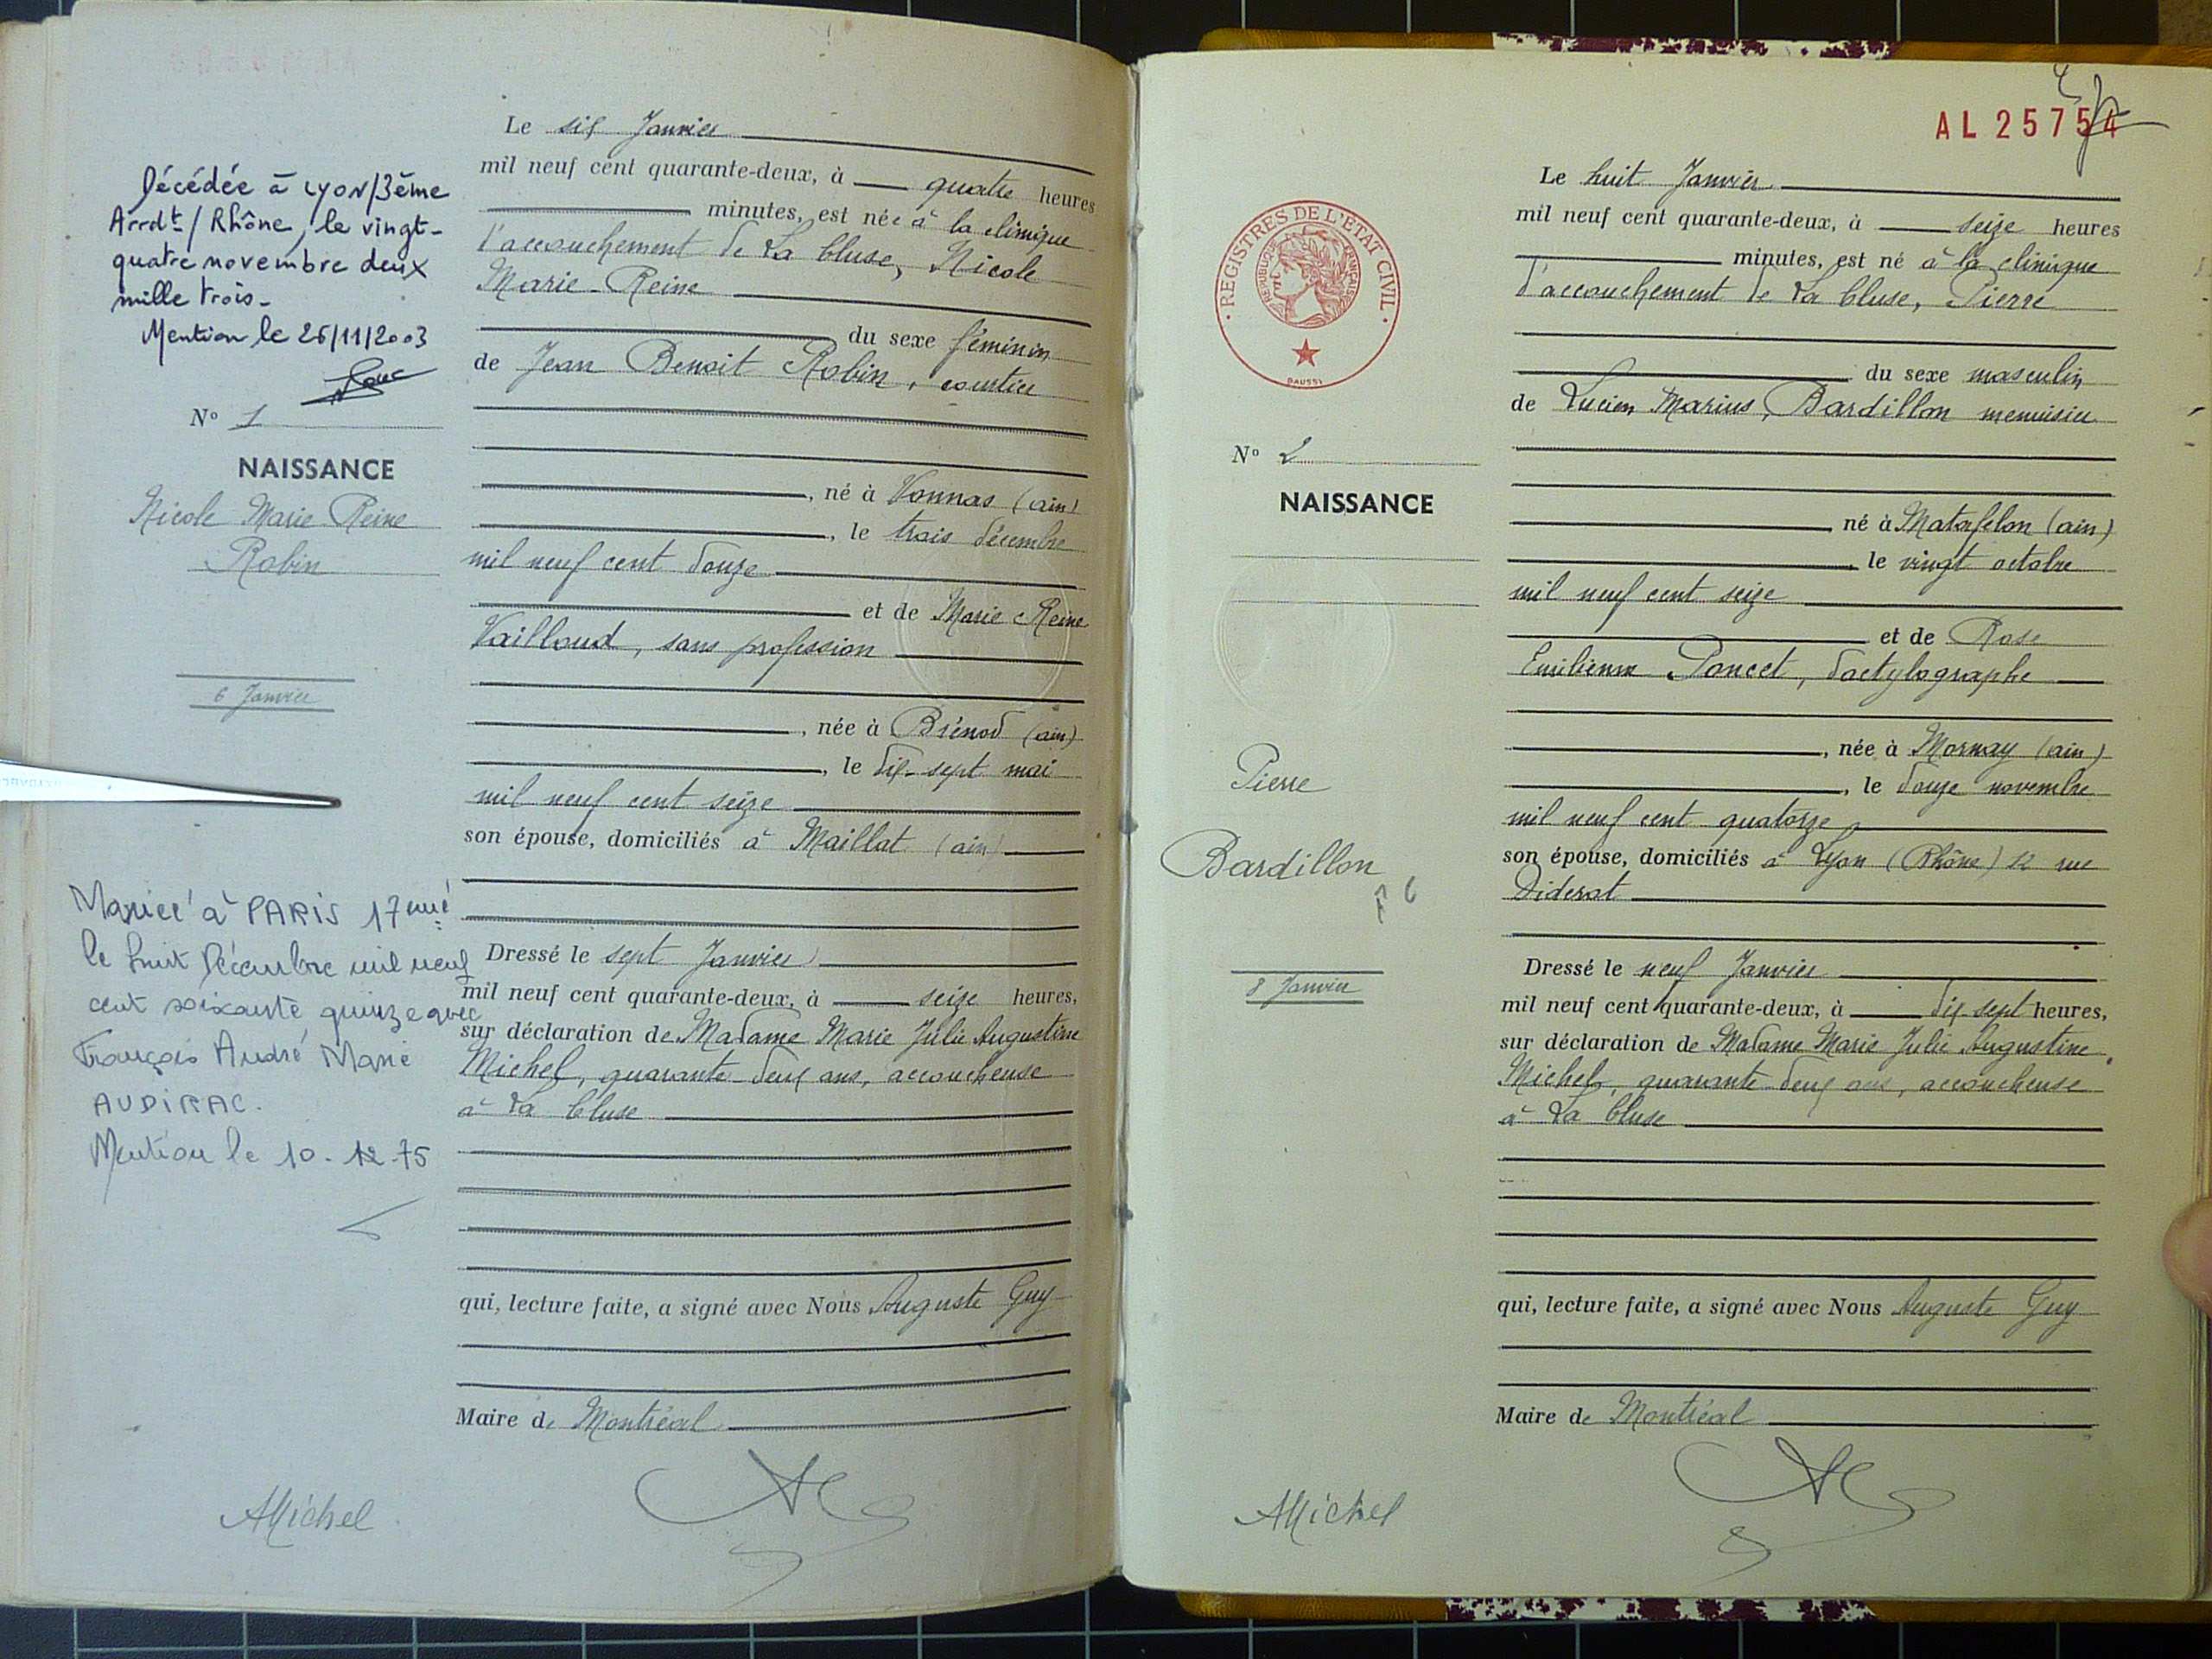 Décédée à Lyon/3ème
Arrdt/Rhône, le vingt-
quatre novembre deux
mille trois-
Mention le 26/11/2003
N° 1
NAISSANCE
Nicole Marie Reine
Robin
6 Janvier
Mariée à PARIS 17ème
le huit Décembre mil neuf
cent soixante quinze avec
François André Marie
AUDIRAC.
Mention le 10-12-75
Le six Janvier
mil neuf cent quarante-deux, à quatre heures
minutes, est née à la clinique
d'accouchement de La Cluse, Nicole
Marie-Reine
du sexe féminin
de Jean Benoit Robin, courtier
, né à Vonnas (ain)
, le trois décembre
mil neuf cent douze
et de Marie Reine
Vailloud, sans profession
, née à Brénod (ain)
, le dix-sept mai
mil neuf cent seize
son épouse, domiciliés à Maillat (ain)
Dressé le sept Janvier
mil neuf cent quarante-deux, à seize heures,
sur déclaration de Madame Marie Julie Augustine
Michel, quarante-deux ans, accoucheuse
à La Cluse
qui, lecture faite, a signé avec Nous Auguste Guy
Maire de Montréal
AMichel
AL 25754
REGISTRES DE L'ÉTAT CIVIL
RÉPUBLIQUE FRANÇAISE
DAUSSI
N° 2
NAISSANCE
Pierre
Bardillon
8 Janvier
Le huit Janvier
mil neuf cent quarante-deux, à seize heures
minutes, est né à la clinique
d'accouchement de La Cluse, Pierre
du sexe masculin
de Lucien Marius, Bardillon menuisier
né à Matafelon (ain)
, le vingt octobre
mil neuf cent seize
et de Rose
Emilienne Poncet, dactylographe
, née à Mornay (ain)
, le douze novembre
mil neuf cent quatorze
son épouse, domiciliés à Lyon (Rhône) 12 rue
Diderot
Dressé le neuf Janvier
mil neuf cent quarante-deux, à dix-sept heures,
sur déclaration de Madame Marie Julie Augustine
Michel, quarante-deux ans, accoucheuse
à La Cluse
qui, lecture faite, a signé avec Nous Auguste Guy
Maire de Montréal
AMichel